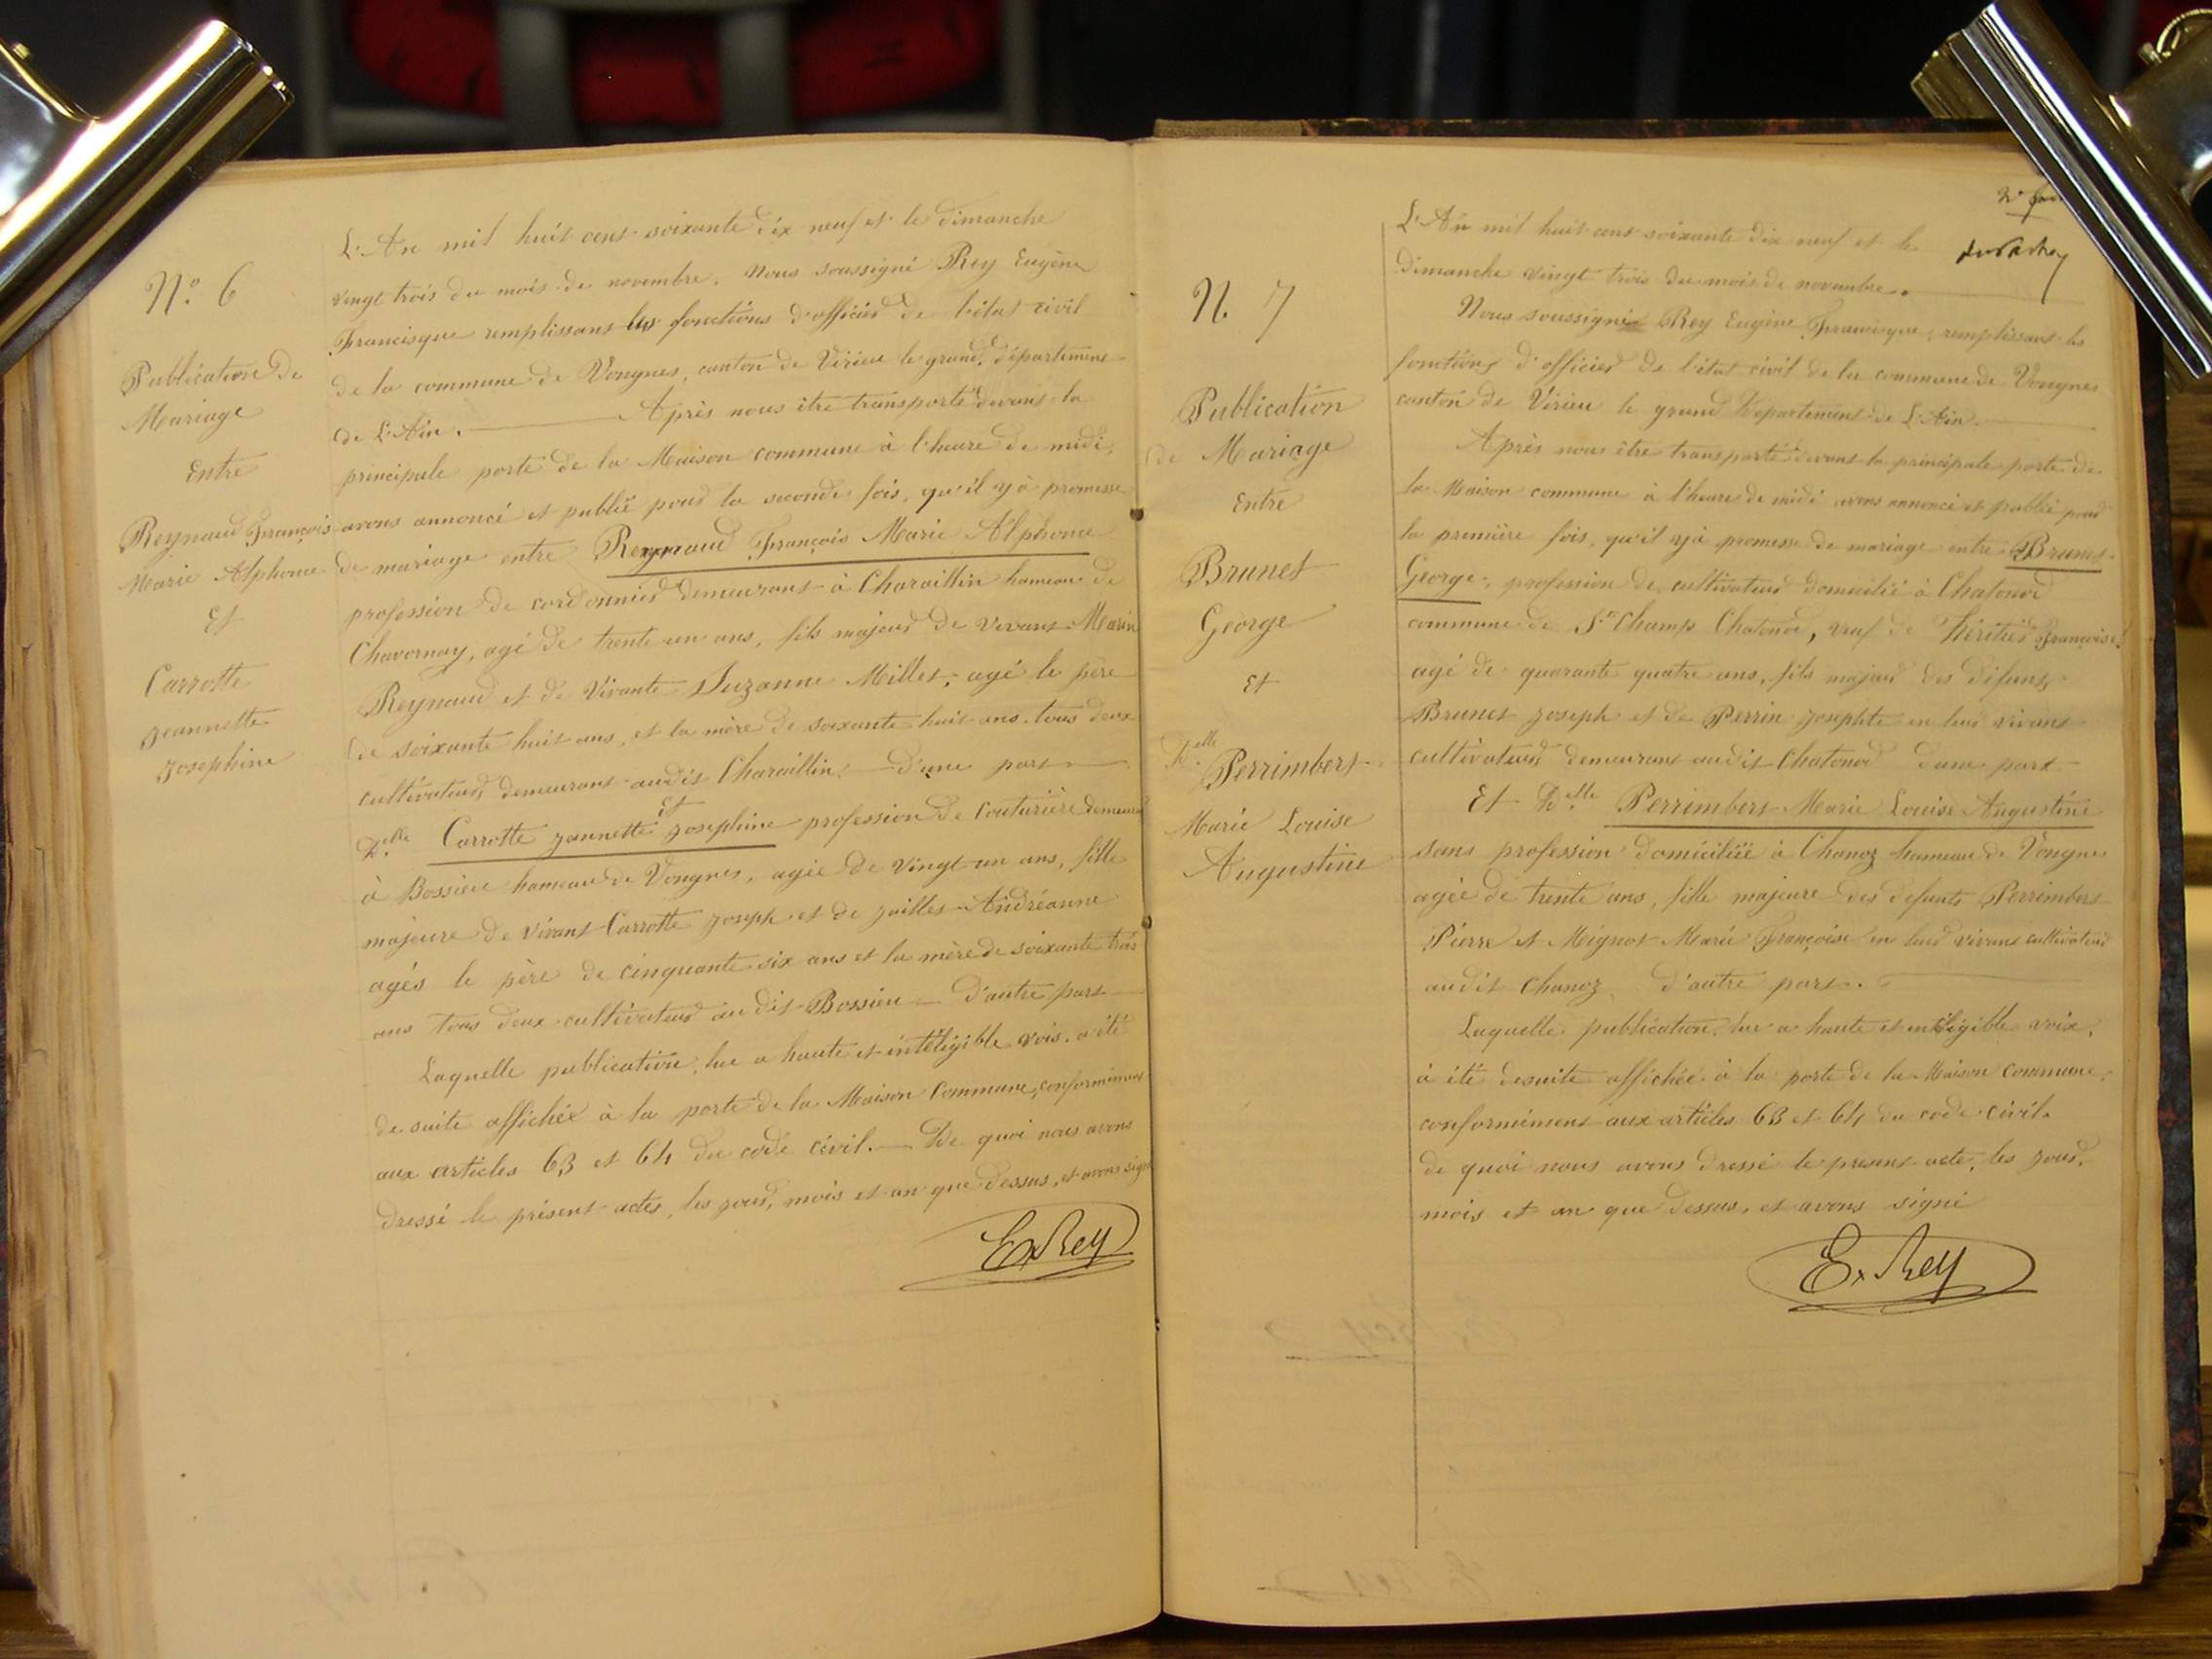 N.° 6
Publication de
Mariage
Entre
Reynaud François
Marie Alphonce
Et
Carrotte
Jeannette
Josephine
L'An mil huit cent soixante dix neuf et le dimanche
vingt trois du mois de novembre. Nous soussigné Rey Eugène
Francisque remplissant les fonctions d'officier de l'état civil
de la commune de Vongnes, canton de Virieu le grand, département
de L'Ain. Après nous être transporté devant la
principale porte de la Maison commune à l'heure de midi,
avons annoncé et publié pour la seconde fois, qu'il y à promesse
de mariage entre Reynaud François Marie Alphonce
profession de cordonnier demeurant à Charaillin hameau de
Chavornay, agé de trente un ans, fils majeur de vivant Marin
Reynaud et de Vivante Suzanne Millet, agé le père
de soixante huit ans, et la mère de soixante huit ans tous deux
cultivateurs demeurant audit Charaillin. D'une part
Et
D.elle Carrotte Jeannette Josephine profession de Couturière demeurant
à Bossieu hameau de Vongnes, agée de vingt un ans, fille
majeure de vivant Carrotte Joseph et de Jaillet Andréanne
agés le père de cinquante six ans et la mère de soixante trois
ans tous deux cultivateurs au dit Bossieu D'autre part
Laquelle publication, lue a haute et intéligible voix, a été
de suite affichée à la porte de la Maison Commune, conformément
aux articles 63 et 64 du code civil. De quoi nous avons
dressé le présent actes, les jour, mois et an que dessus, et avons signé
Ex Rey
2e fois
N. 7
Publication
de Mariage
Entre
Brunet
George
Et
D.elle Perrimbert
Marie Louise
Augustine
L'An mil huit cent soixante dix neuf et le
dimanche vingt trois du mois de novembre.
Nous soussigné Rey Eugène Francisque, remplissant les
fonctions d'officier de l'état civil de la commune de Vongnes
canton de Virieu le grand Département de L'Ain.
Après nous être transporté devant la principale porte de
la Maison commune à l'heure de midi avons annoncé et publié pour
la première fois, qu'il y à promesse de mariage entre Brunet
George, profession de cultivateur domicilié à Chatonod
commune de St Champ Chatonod, veuf de Héritier Françoise
agé de quarante quatre ans, fils majeur des défunts
Brunet Joseph et de Perrin Josephte en leur vivant
cultivateurs demeurant audit Chatonod d'une part
Et D.elle Perrimbert Marie Louise Augustine
sans profession domiciliée à Chanoz hameau de Vongnes
agée de trente ans, fille majeure des defunts Perrimbert
Pierre et Mignot Marie Françoise en leur vivant cultivateurs
audit Chanoz. d'autre part.
Laquelle publication, lue a haute et intéligible voix,
à été desuite affichée à la porte de la Maison Commune,
conformément aux articles 63 et 64 du code civil.
de quoi nous avons dressé le présent acte, les jour,
mois et an que dessus, et avons signé
Ex Rey